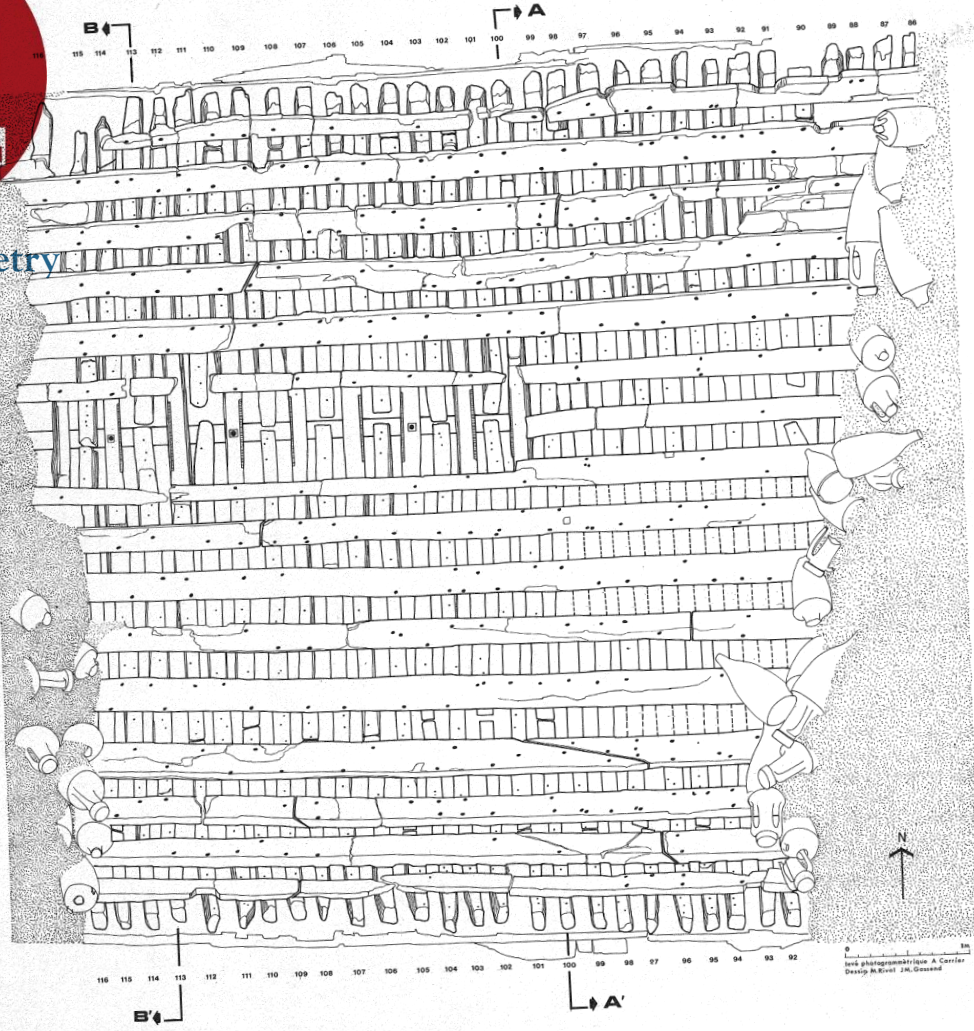 B A
116 115 114 113 112 111 110 109 108 107 106 105 104 103 102 101 100 99 98 97 96 95 94 93 92 91 90 89 88 87 86
etry
N
0 1m
levé photogrammètrique A Carrier
Dessin M.Rival J.M.Gassend
116 115 114 113 112 111 110 109 108 107 106 105 104 103 102 101 100 99 98 97 96 95 94 93 92
B' A'